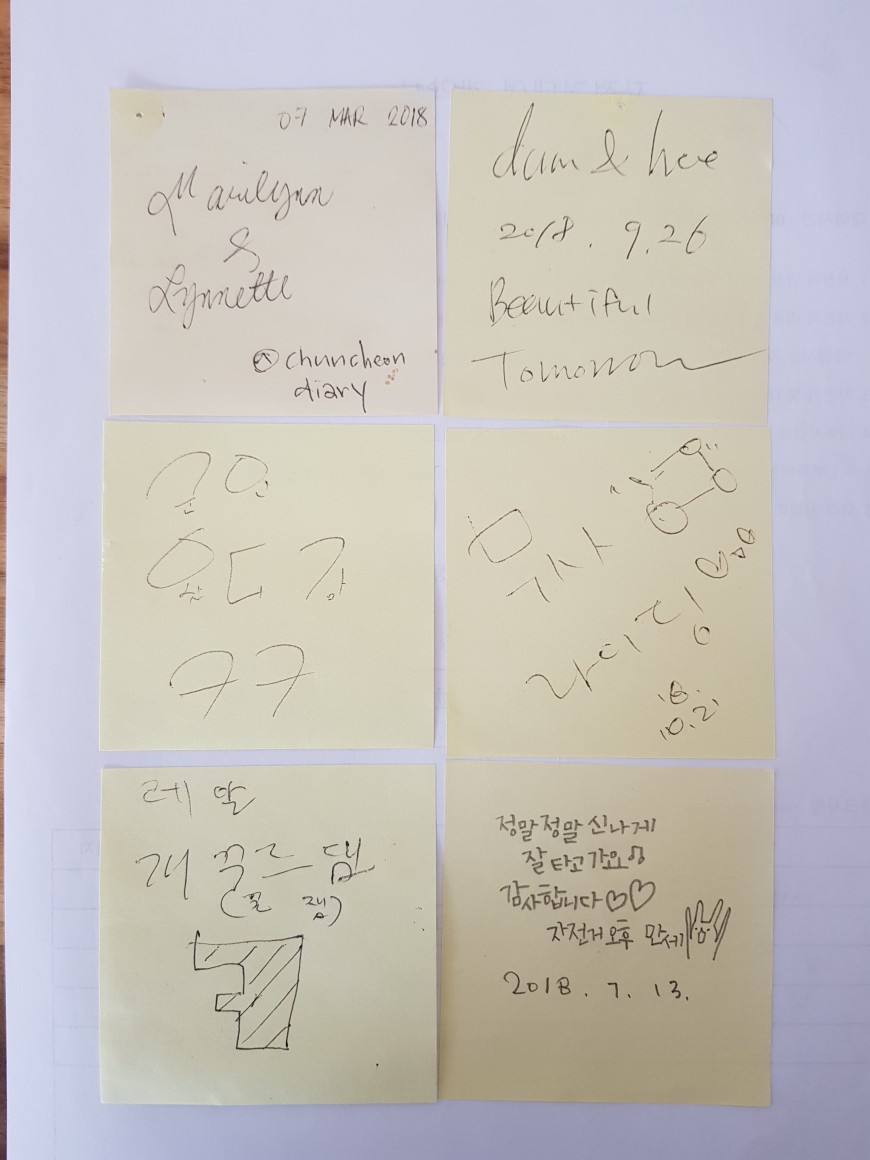 07 MAR 2018
Marilynn
&
Lynnette
@chuncheon
diary
dum & hee
2018. 9.26
Beautiful
Tomorrow
굳잉
욘더강
ㅋㅋ
무사
라이딩
18.
10.2
레알
개꿀르댐
(꿀잼)
ㅋ
정말정말 신나게
잘 타고 가요♪
감사합니다♡♡
자전거오후 만세
2018. 7. 13.